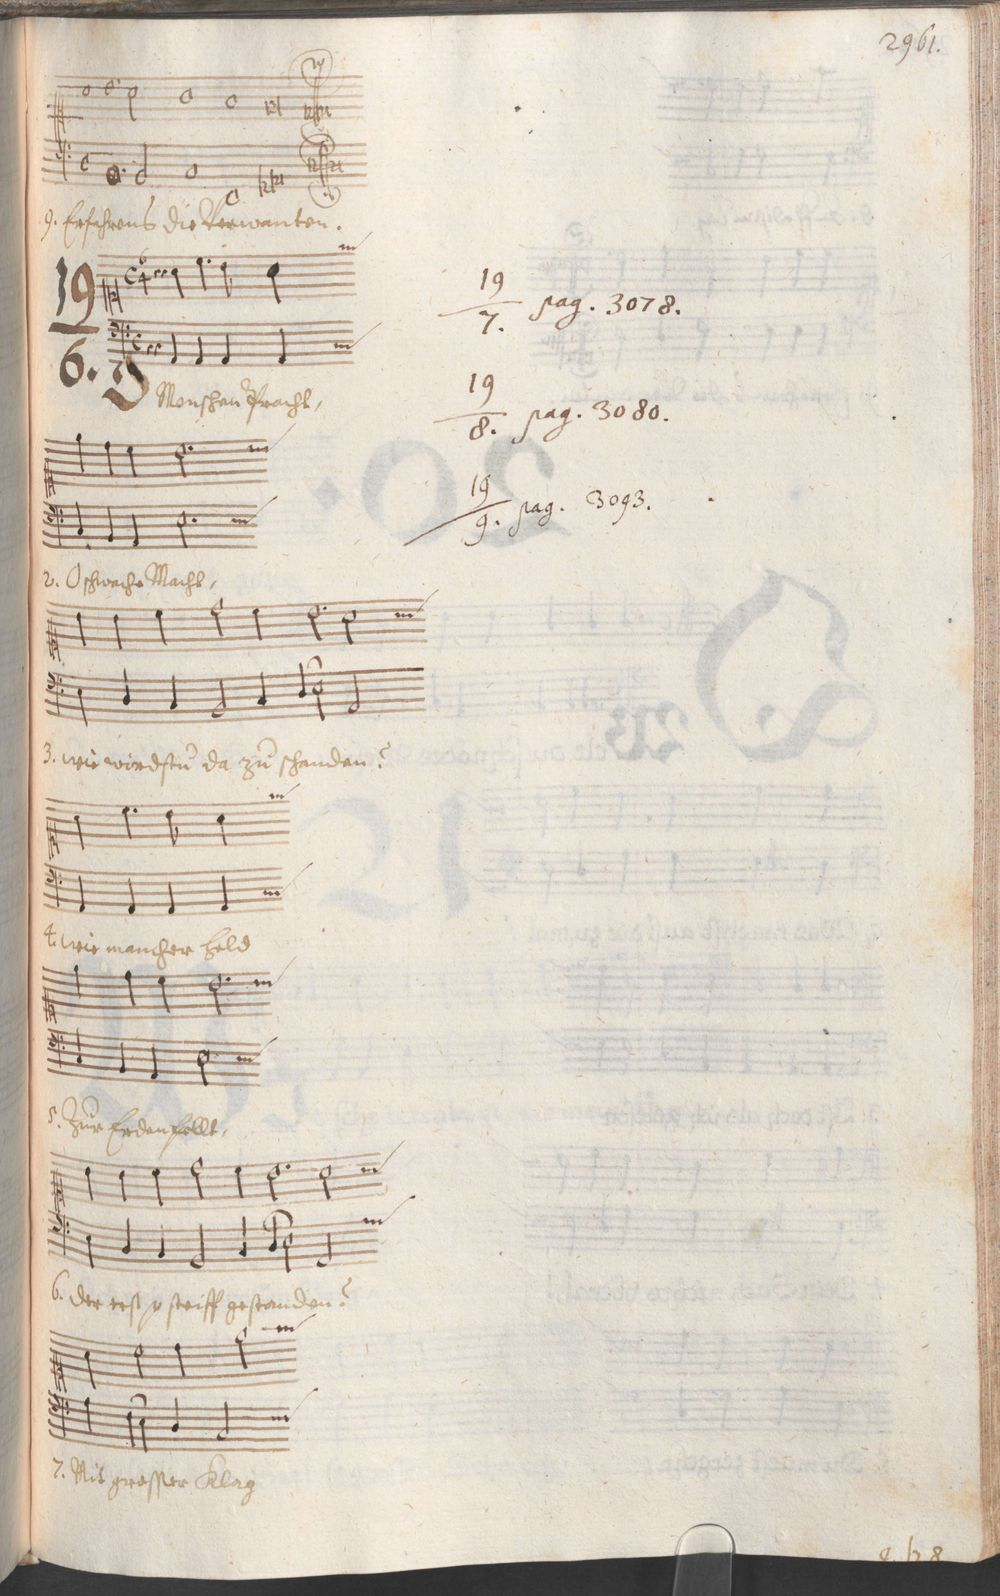 2961.
9. Erfahrens die Verwanten.
19
6.
O Menschen Pracht,
19
7. pag. 3078.
19
8. pag. 3080.
19
9. pag. 3093.
2. O schwache Macht,
3. wie wirdstu da zu schanden?
4. wie mancher Held
5. Zur Erden fellt,
6. der erst so steiff gestanden?
7. Mit grosser Klag